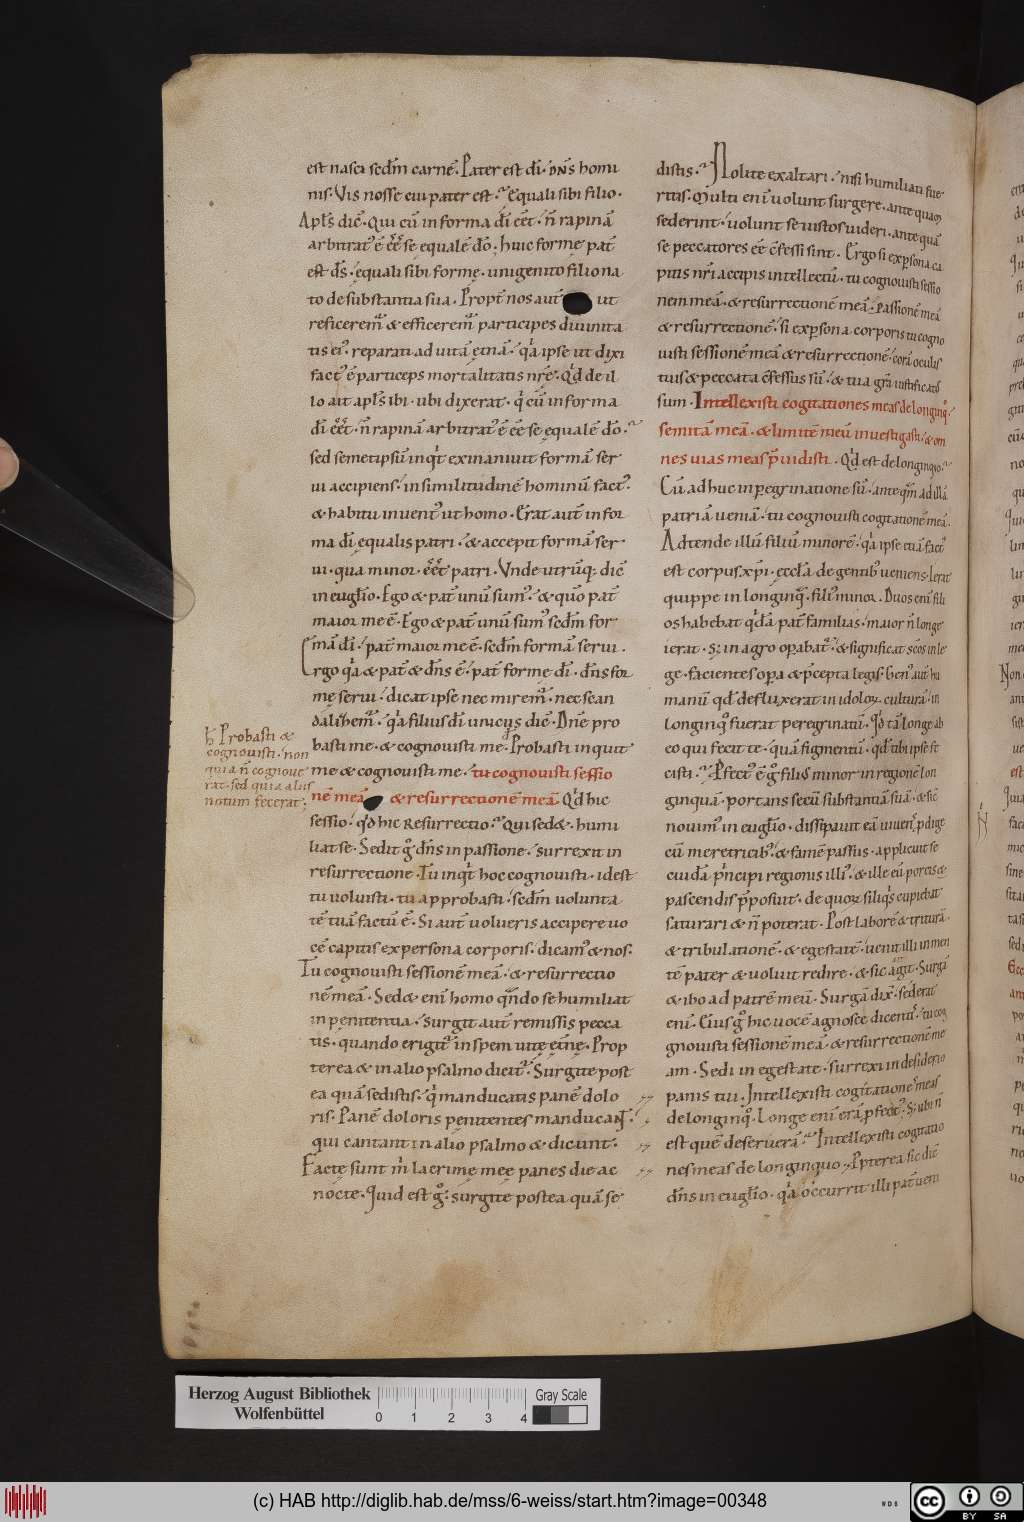 est nasci scd̄m carnē. Pater est dī. DN̄s homi
nis. Vis nosse cui pater est? Equali sibi filio.
Apl̄s dic̄. Qui cū in forma dī eēt. n̄ rapinā
arbitrat᷒ ē eē se equalē dō. huic formę pat̄
est dn̄s. equali sibi formę. unigenito filio na
to de substantia sua. Propt̄ nos aut̄ ut
reficeremur̄ & efficeremur̄ participes diuinita
tis ei᷒. reparati ad uitā et̄nā. qa ipse ut dixi
fact᷒ ē particeps mortalitatis nr̄ę. Qd̄ de il
lo ait apl̄s ibi. ubi dixerat. qi cū in forma
dī eēt. n̄ rapinā arbitrat᷒ ē eē se equalē dō.
sed semetipsū inqt̄ exinaniuit formā ser
ui accipiens. in similitudinē hominū fact᷒.
& habitu inuent᷒ ut homo. Erat aut̄ in for
ma dī equalis patri. & accepit formā ser
ui. qua minor. eēt patri. Vnde utrūq; dic̄
in eugl̄io. Ego & pat̄ unū sum᷒. & quō pat̄
maior me ē. Ego & pat̄ unū sum᷒ scd̄m for
mā dī. pat̄ maior me ē. scd̄m formā serui.
Ergo qa & pat̄ & dn̄s ē. pat̄ formę dī. dn̄s for
mę serui. dicat ipse nec miremur̄. nec scan
dalibemur̄. qa filius dī unicus dic̄. Dn̄e pro
basti me. & cognouisti me. Probasti inquit
me & cognouisti me. tu cognouisti sessio
nē meā & resurrectionē meā. Qd̄ hic
sessio. qd̄ hic Resurrectio? Qui sed&. humi
liat se. Sedit go dn̄s in passione. surrexit in
resurrectione. Tu inqt̄ hoc cognouisti. idest
tu uoluisti. tu approbasti. scd̄m uolunta
tē tuā factū ē. Si aut̄ uolueris accipere uo
cē capitis ex persona corporis. dicam᷒ & nos.
Tu cognouisti sessionē meā. & resurrectio
nē meā. Sed& enī homo qn̄do se humiliat
in penitentia. surgit aut̄ remissis pecca
tis. quando erigit᷒ in spem uitę et̄nę. Prop
terea & in alio psalmo dicit᷒. Surgite post
ea quā sedistis. qi manducatis panē dolo
ris. Panē doloris penitentes manducant.
qui cantant in alio psalmo & dicunt.
Factę sunt m̄ lacrimę meę panes die ac
nocte. Quid est go. surgite postea quā se
Probasti &
cognouisti. non
quia n̄ cognoue
rat. sed quia aliis
notum fecerat;
distis? Nolite exaltari. nisi humiliati fue
ritis. Multi enī uolunt surgere. ante quam
sederint. uolunt se iustos uideri. ante quā
se peccatores eē c̄fessi sint. Ergo si ex psona ca
pitis nr̄i accipis intellectū. tu cognouisti sessio
nem meā. & resurrectionē meā. passionē meā
& resurrectionē. si ex psona corporis tu cogno
uisti sessionē meā & resurrectionē. corā oculis
tuis & peccata c̄fessus sū. & tua gr̄a iustificatus
sum. Intellexisti cogitationes meas de longinqo.
semitā meā. & limitē meū inuestigasti. & om
nes uias meas p̄uidisti. Qd̄ est de longinquo?
Cū adhuc in peregrinatione sū. ante qm̄ ad illā
patriā ueniā. tu cognouisti cogitationē meā.
Adtende illū filiū minorē. qa ipse etiā fact᷒
est corpus xp̄i. eccl̄a de gentib᷒ ueniens. Ierat
quippe in longinqo. fili᷒ minor. Duos enī fili
os habebat qdā pat̄ familias. maior n̄ longe
ierat. s; in agro opabat᷒. & significat scōs in le
ge. facientes opa & p̄cepta legis. Gen᷒ aut̄ hu
manū qd̄ defluxerat in idoloꝝ culturā. in
longinqo fuerat peregrinatū. Qd tā longe ab
eo qui fecit te. quā figmentū. qd̄ tibi ipse fe
cisti. Pfect᷒ ē go fili᷒ minor in regionē lon
ginquā. portans secū substantiā suā. & sic̄
nouim᷒ in eugl̄io. dissipauit eā uiuens pdige
cū meretricib᷒. & famē passus. applicuit se
cuidā pncipi regionis illi᷒. & ille eū porcis &
pascendis p̄posuit. de quoꝝ siliqis cupiebat
saturari & n̄ poterat. Post laborē & triturā.
& tribulationē. & egestatē. uenit illi in men
tē pater & uoluit redire. & sic agit. Surgā
& ibo ad patrē meū. Surgā dix. sederat
enī. Eius go hic uocē agnosce dicentis. tu cog
gnouisti sessionē meā. & resurrectionē me
am. Sedi in egestate. surrexi in desiderio
panis tui. Intellexisti cogitationes meas
de longinqo. Longe enī erā pfect᷒. S; ubi n̄
est quē deseruerā? Intellexisti cogitatio
nes meas de longinquo. Ppterea sic dic̄
dn̄s in eugl̄io. qa occurrit illi pat̄ ueni
Herzog August Bibliothek
Wolfenbüttel
0 1 2 3 4
Gray Scale
(c) HAB http://diglib.hab.de/mss/6-weiss/start.htm?image=00348
WDB
cc BY SA